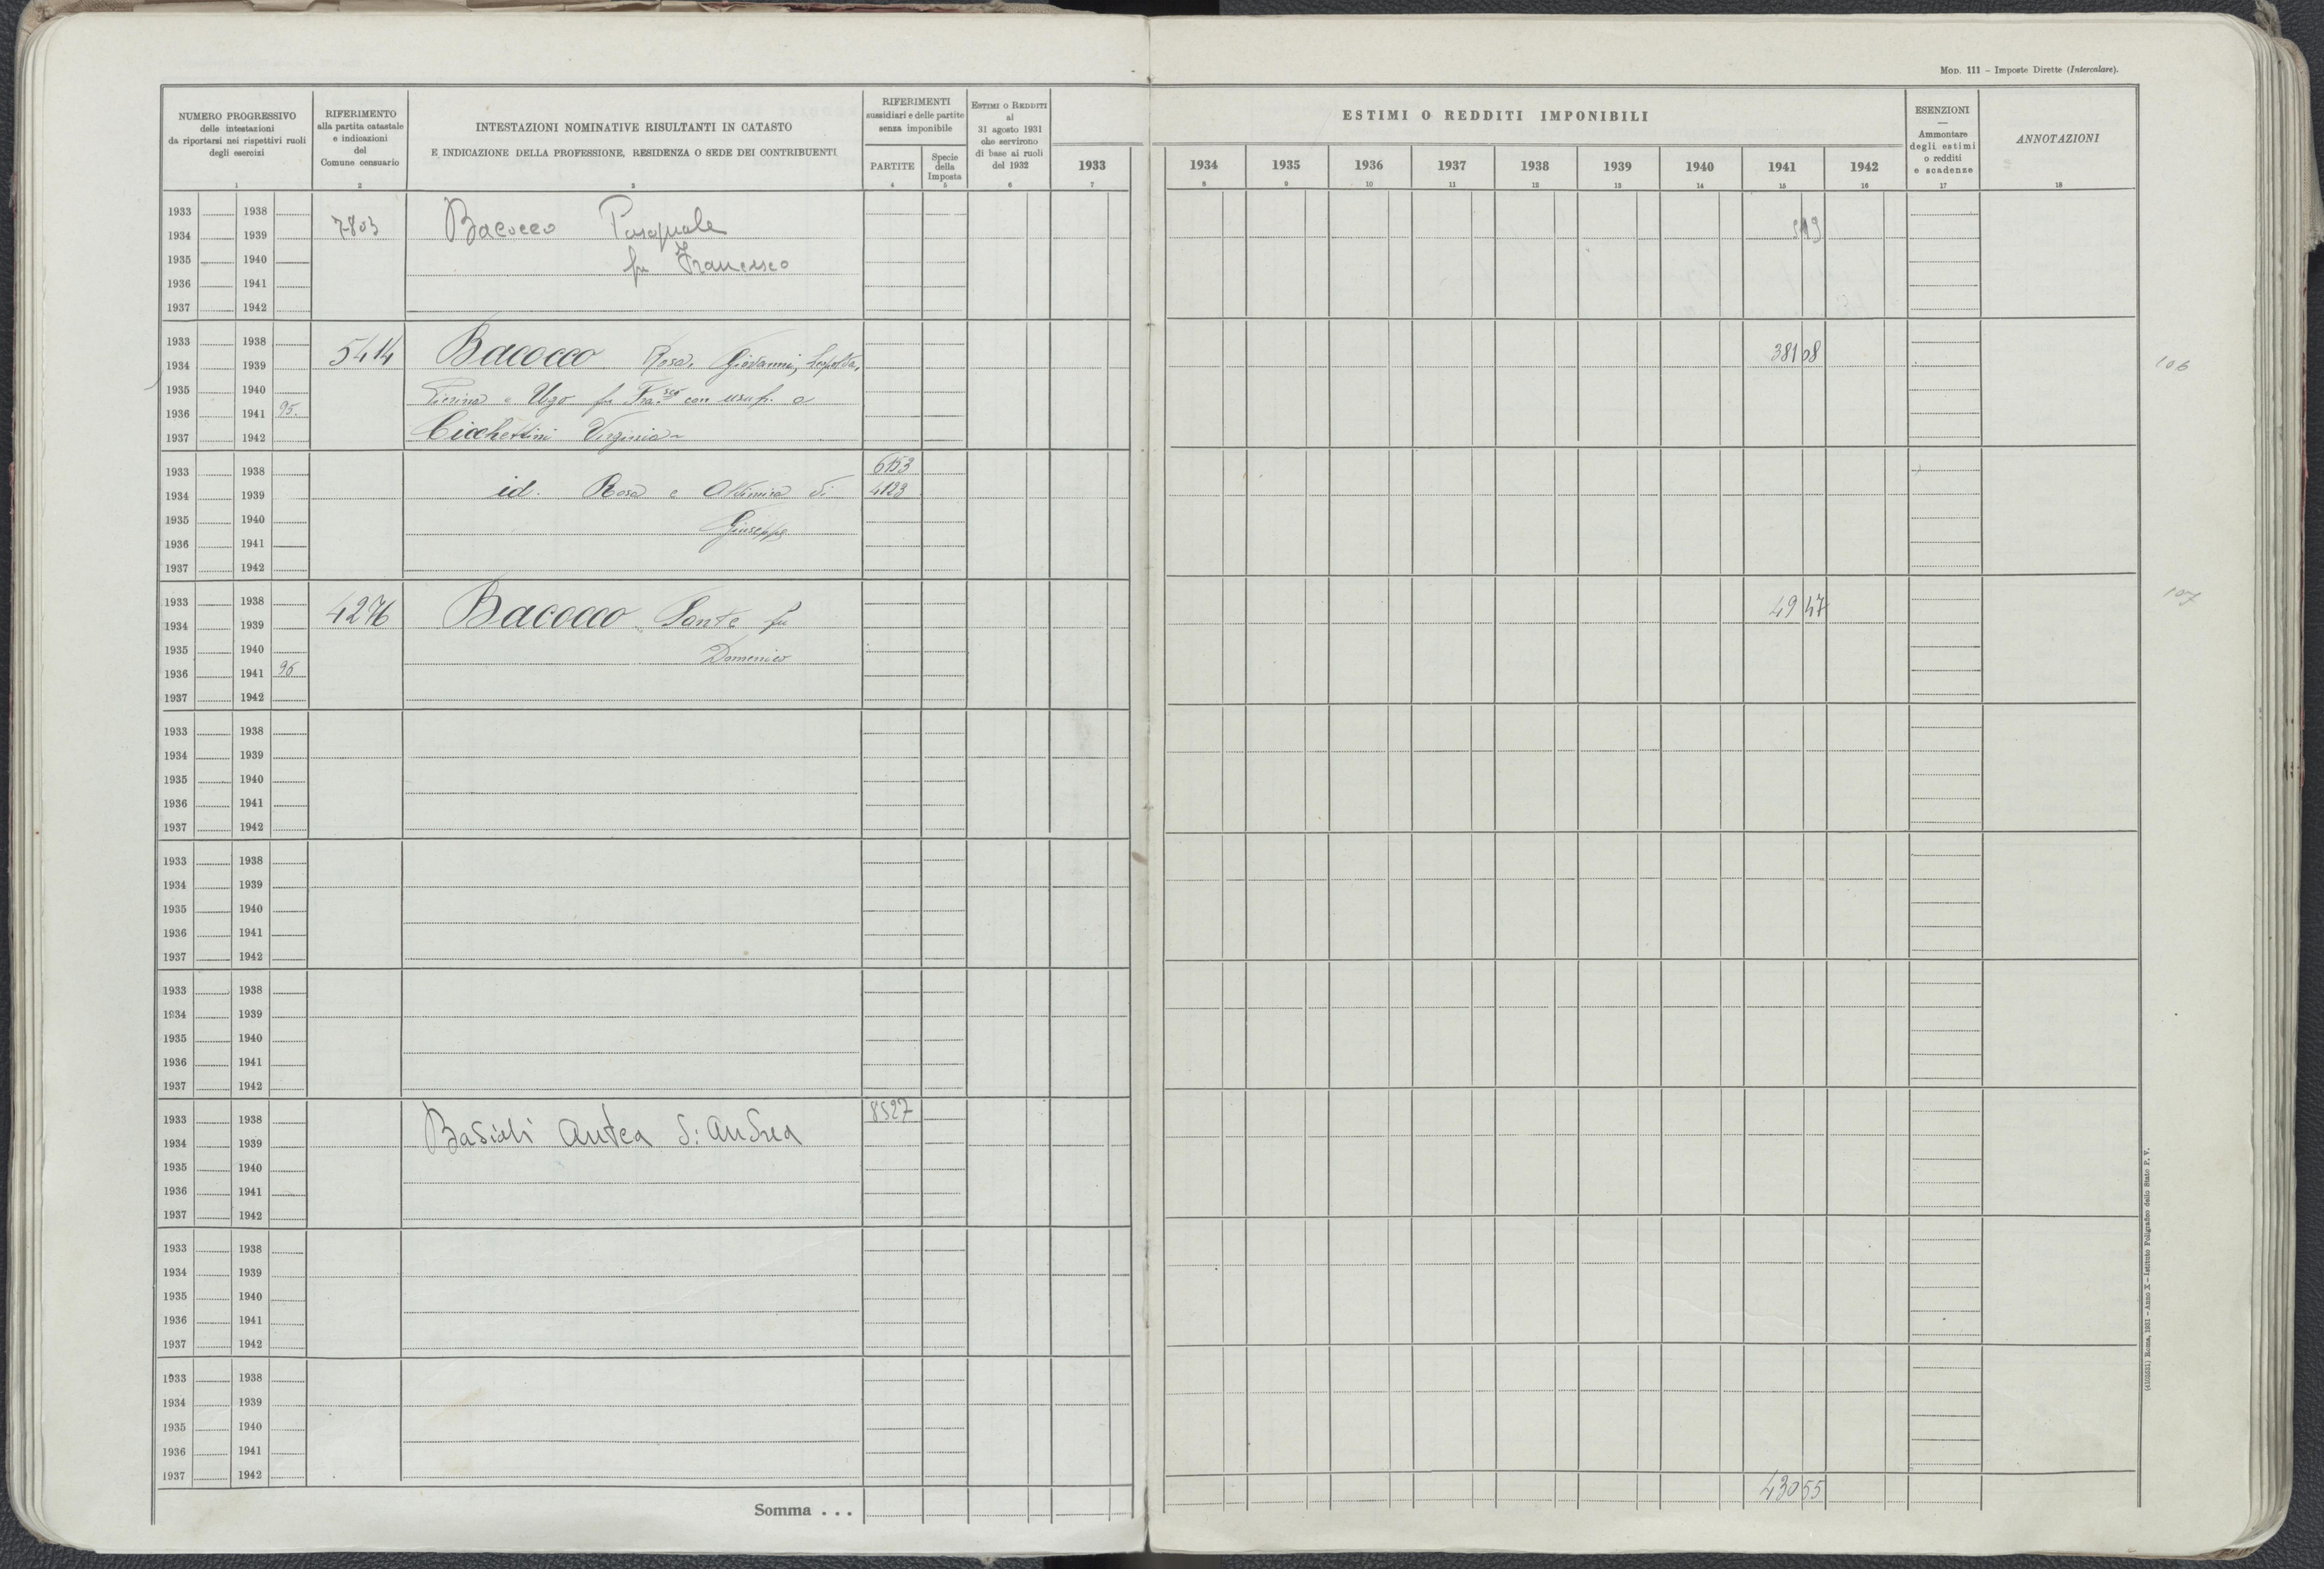 Mod. 111 – Imposte Dirette (Intercalare).
NUMERO PROGRESSIVO
delle intestazioni
da riportarsi nei rispettivi ruoli
degli esercizi
1
RIFERIMENTO
alla partita catastale
e indicazioni
del
Comune censuario
2
INTESTAZIONI NOMINATIVE RISULTANTI IN CATASTO
E INDICAZIONE DELLA PROFESSIONE, RESIDENZA O SEDE DEI CONTRIBUENTI
3
RIFERIMENTI
sussidiari e delle partite
senza imponibile
PARTITE
4
Specie
della
Imposta
5
Estimi o Redditi
al
31 agosto 1931
che servirono
di base ai ruoli
del 1932
6
ESTIMI O REDDITI IMPONIBILI
1933 1934 1935 1936 1937 1938 1939 1940 1941 1942
7 8 9 10 11 12 13 14 15 16
ESENZIONI
—
Ammontare
degli estimi
o redditi
e scadenze
17
ANNOTAZIONI
18
1933 1938
1934 1939 7803 Bacocco Pasquale
1935 1940 fu Francesco
1936 1941
1937 1942
1933 1938
1934 1939 5414 Bacocco Rosa, Giovanni, 38168 106
1935 1940
1936 1941 95. e Ugo fu Fra.sco con usuf. a
1937 1942 Cicchettini Virginia
1933 1938 6153
1934 1939 id. Rosa e di 4123
1935 1940 Giuseppe
1936 1941
1937 1942
1933 1938
1934 1939 4276 Bacocco Sante fu 49 47 107
1935 1940 Domenico
1936 1941 96
1937 1942
1933 1938
1934 1939
1935 1940
1936 1941
1937 1942
1933 1938
1934 1939
1935 1940
1936 1941
1937 1942
1933 1938
1934 1939
1935 1940
1936 1941
1937 1942
1933 1938 8527
1934 1939 Antea di Andrea
1935 1940
1936 1941
1937 1942
1933 1938
1934 1939
1935 1940
1936 1941
1937 1942
1933 1938
1934 1939
1935 1940
1936 1941
1937 1942
Somma . . . 430 55
(4103251) Roma, 1931 – Anno X – Istituto Poligrafico dello Stato P. V.